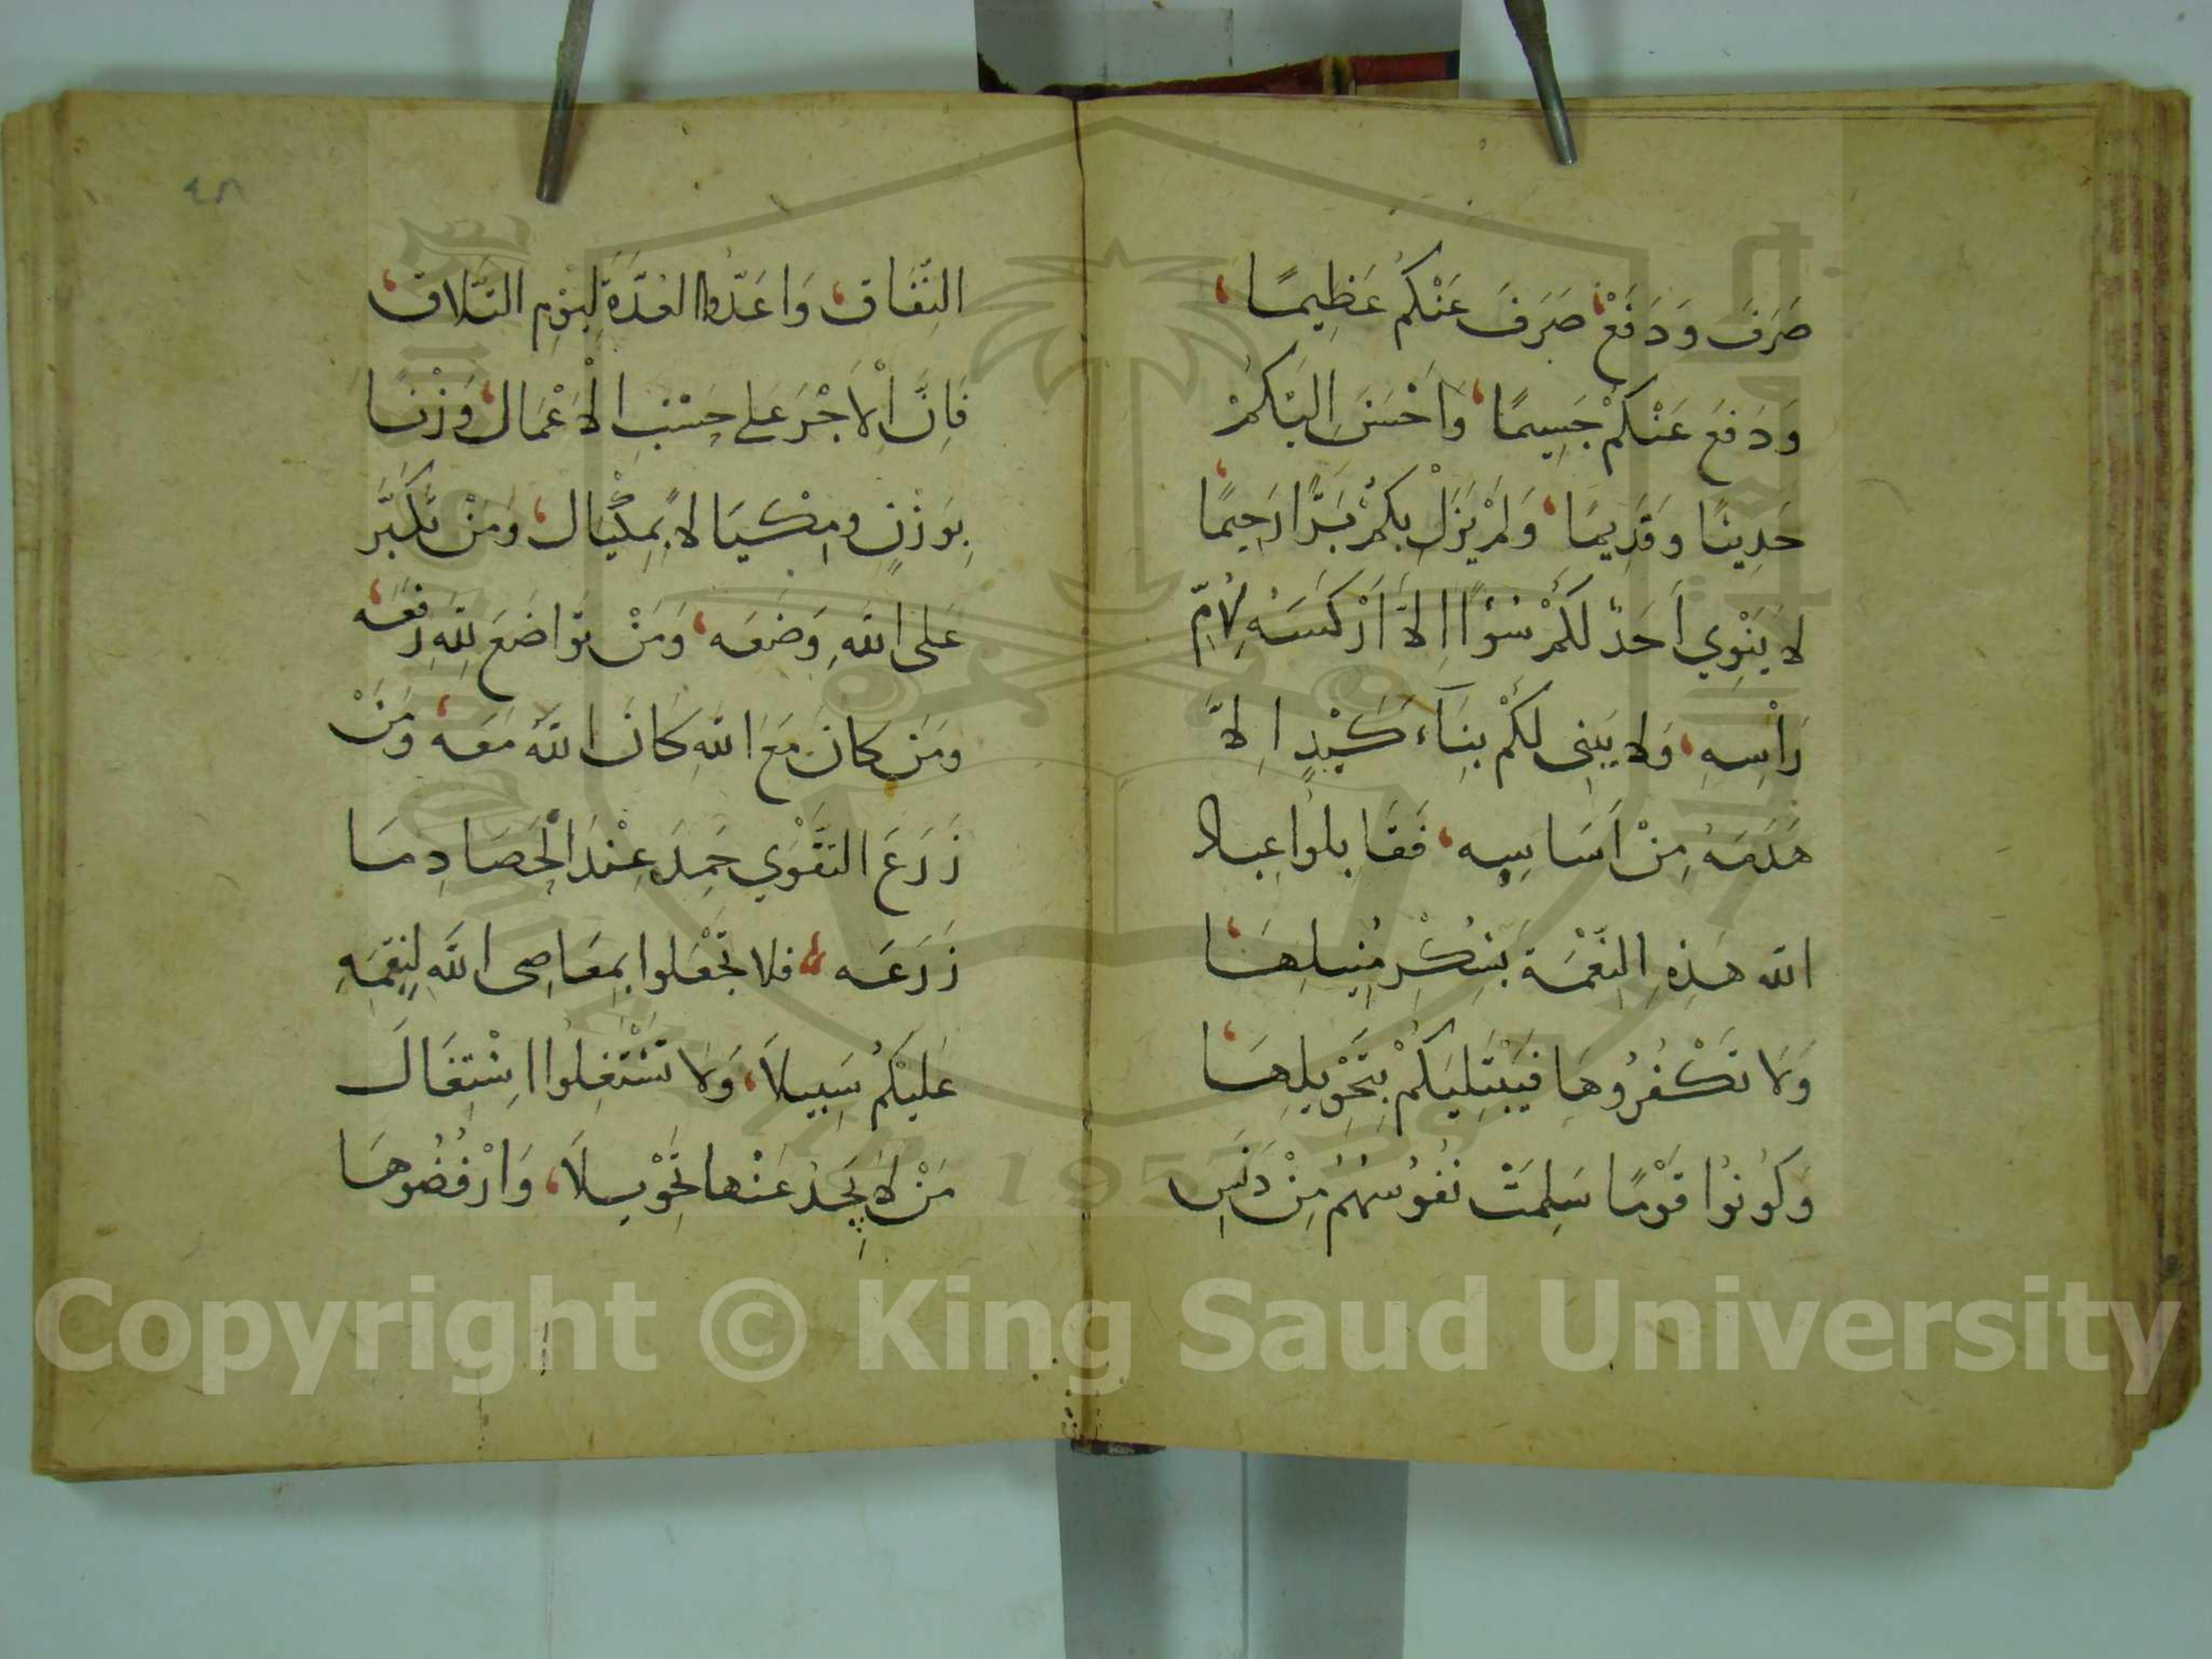 صَرَفَ وَدَفَعْ، صَرَفَ عَنْكُمْ عَظِيمًا،
وَدَفَعَ عَنْكُمْ جَسِيمًا، وَاَحْسَنَ اِلَيْكُمْ
حَدِيثًا وَقَدِيمًا، وَلَمْ يَزَلْ بِكُمْ بَرًّا رَحِيمًا،
لَا يَنْوِي اَحَدٌ لَكُمْ سُوْءًا اِلَّا اَرْكَسَهُ لِاُمِّ
رَأْسِهِ، وَلَا يَبْنِى لَكُمْ بِنَآءَ كَيْدٍ اِلَّا
هَدَمَهُ مِنْ اَسَاسِهِ، فَقَابِلُوا عِبَادَ
الله هَذِهِ النِّعْمَةَ بِشُكْرِ مُنِيلِهَا،
وَلَا تَكْفُرُوهَا فَيَبْتَلِيَكُمْ بِتَحْوِيلِهَا،
وَكُونُوْا قَوْمًا سَلِمَتْ نُفُوسُهُمْ مِنْ دَنَسِ
٤٨
النِّفَاق، وَاَعَدُّوا العُدَّةَ لِيَوْمِ التَّلَاق،
فَاِنَّ الْاَجْرَ عَلى حَسْبِ الْاَعْمَال، وَزْنًا
بِوَزْنٍ وَمِكْيَالًا بِمِكْيَال، وَمَنْ تَكَبَّرَ
عَلَى اللهِ وَضَعَه، وَمَنْ تَوَاضَعَ لِلهِ رَفَعَه،
وَمَن كَانَ مَعَ اللهِ كَانَ اللهُ مَعَه، وَمَنْ
زَرَعَ التَقْوَي حَمِدَ عِنْدَ الْحَصَادِ مَا
زَرَعَه، فَلَا تَجْعَلُوا بِمَعَاصِى اللهِ لِنِقَمِهِ
عَلَيْكُمْ سَبِيلَا، وَلَا تَشْتَغِلُوا اِشْتِغَالَ
مَنْ لَا يَجِدُ عَنْهَا تَحْوِيلَا، وَارْفُضُوهَا
Copyright © King Saud University
1957